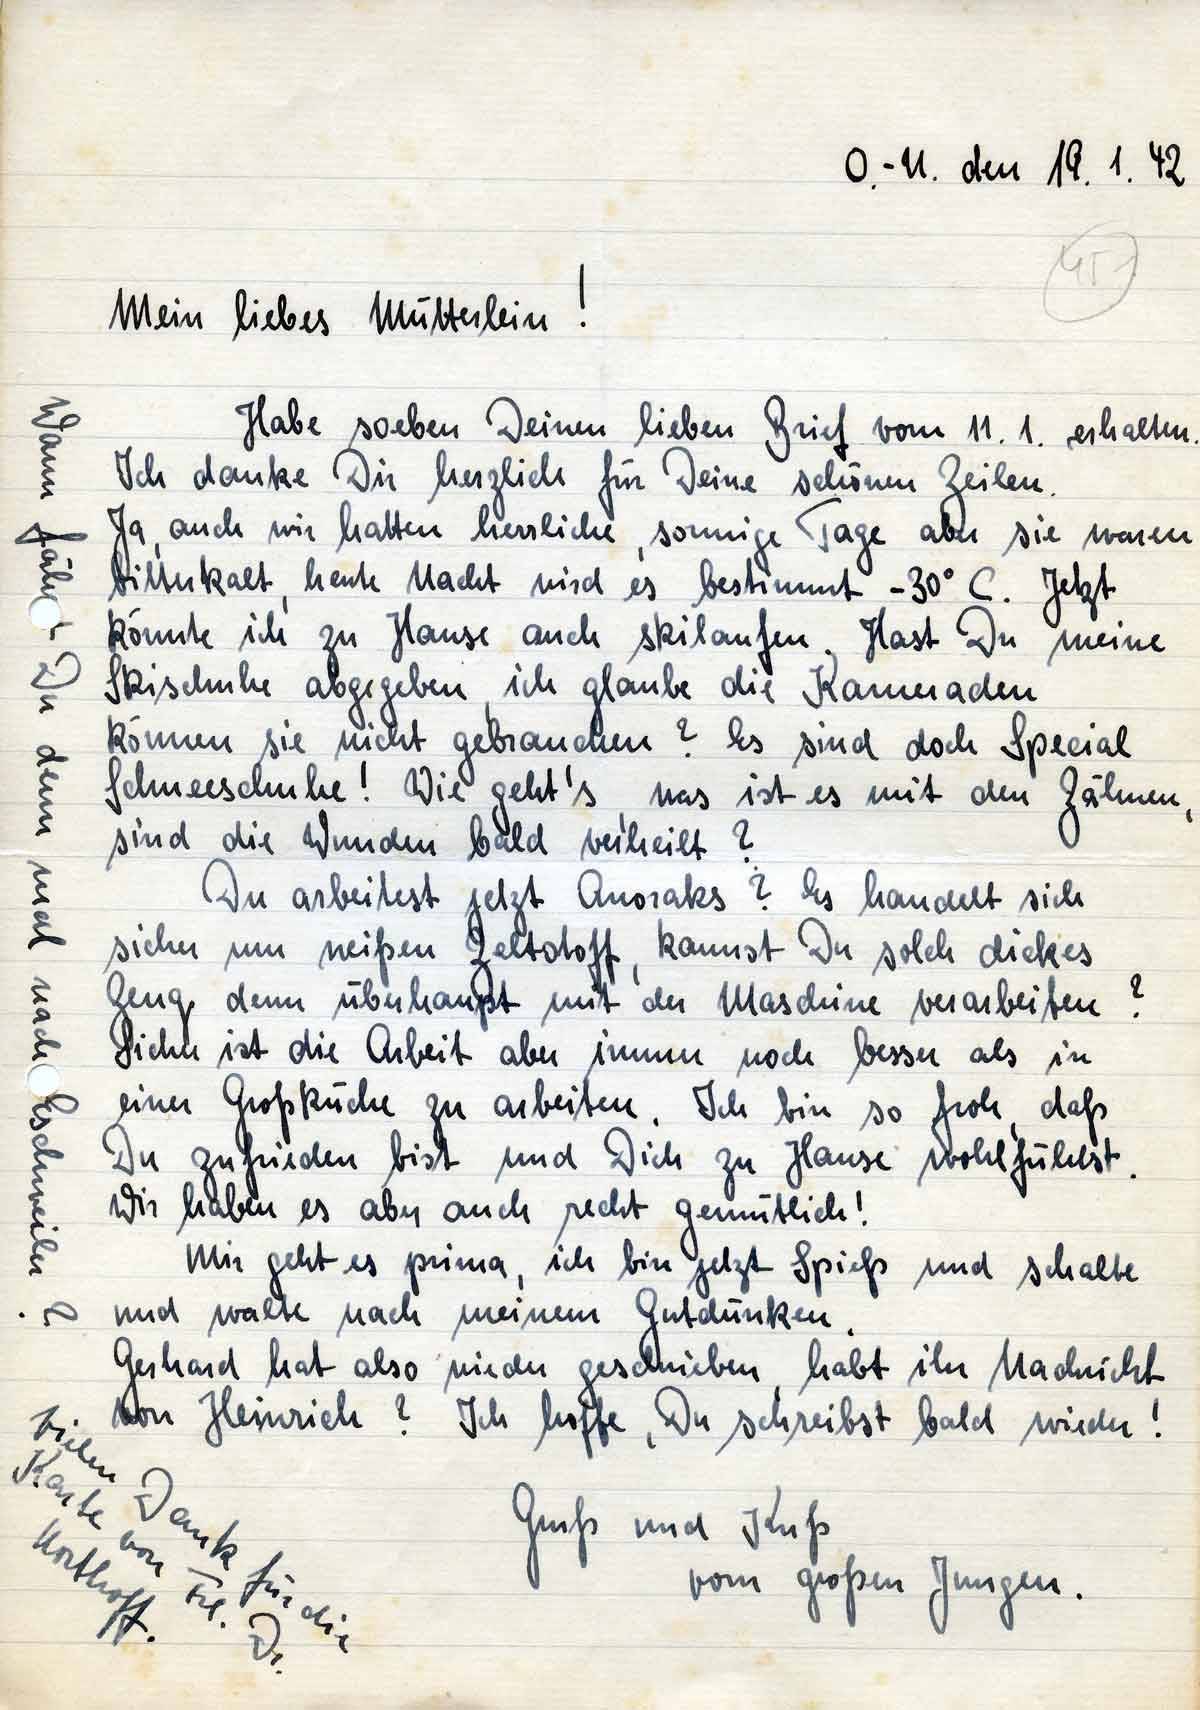 O.-U. den 19. 1. 42
Mein liebes Mütterlein!
Habe soeben Deinen lieben Brief vom 11. 1. erhalten.
Ich danke Dir herzlich für Deine schönen Zeilen.
Ja, auch wir hatten herrliche, sonnige Tage aber sie waren
bitterkalt, heute Nacht wird es bestimmt -30° C. Jetzt
könnte ich zu Hause auch skilaufen. Hast Du meine
Skischuhe abgegeben, ich glaube die Kameraden
können sie nicht gebrauchen? Es sind doch Special
Schneeschuhe! Wie geht's, was ist es mit den Zähnen,
sind die Wunden bald verheilt?
Du arbeitest jetzt Anoraks? Es handelt sich
sicher um weißen Zeltstoff, kannst Du solch dickes
Zeug denn überhaupt mit der Maschine verarbeiten?
Sicher ist die Arbeit aber immer noch besser als in
einer Großküche zu arbeiten. Ich bin so froh, daß
Du zufrieden bist und Dich zu Hause wohlfühlst.
Wir haben es aber auch recht gemütlich!
Mir geht es prima, ich bin jetzt Spieß und schalte
und walte nach meinem Gutdünken.
Gerhard hat also wieder geschrieben, habt ihr Nachricht
von Heinrich? Ich hoffe, Du schreibst bald wieder!
Gruß und Kuß
vom großen Jungen.
Wann fährst Du denn mal nach Eschweiler?
Vielen Dank für die
Karte von Frl. D.
Northoff.